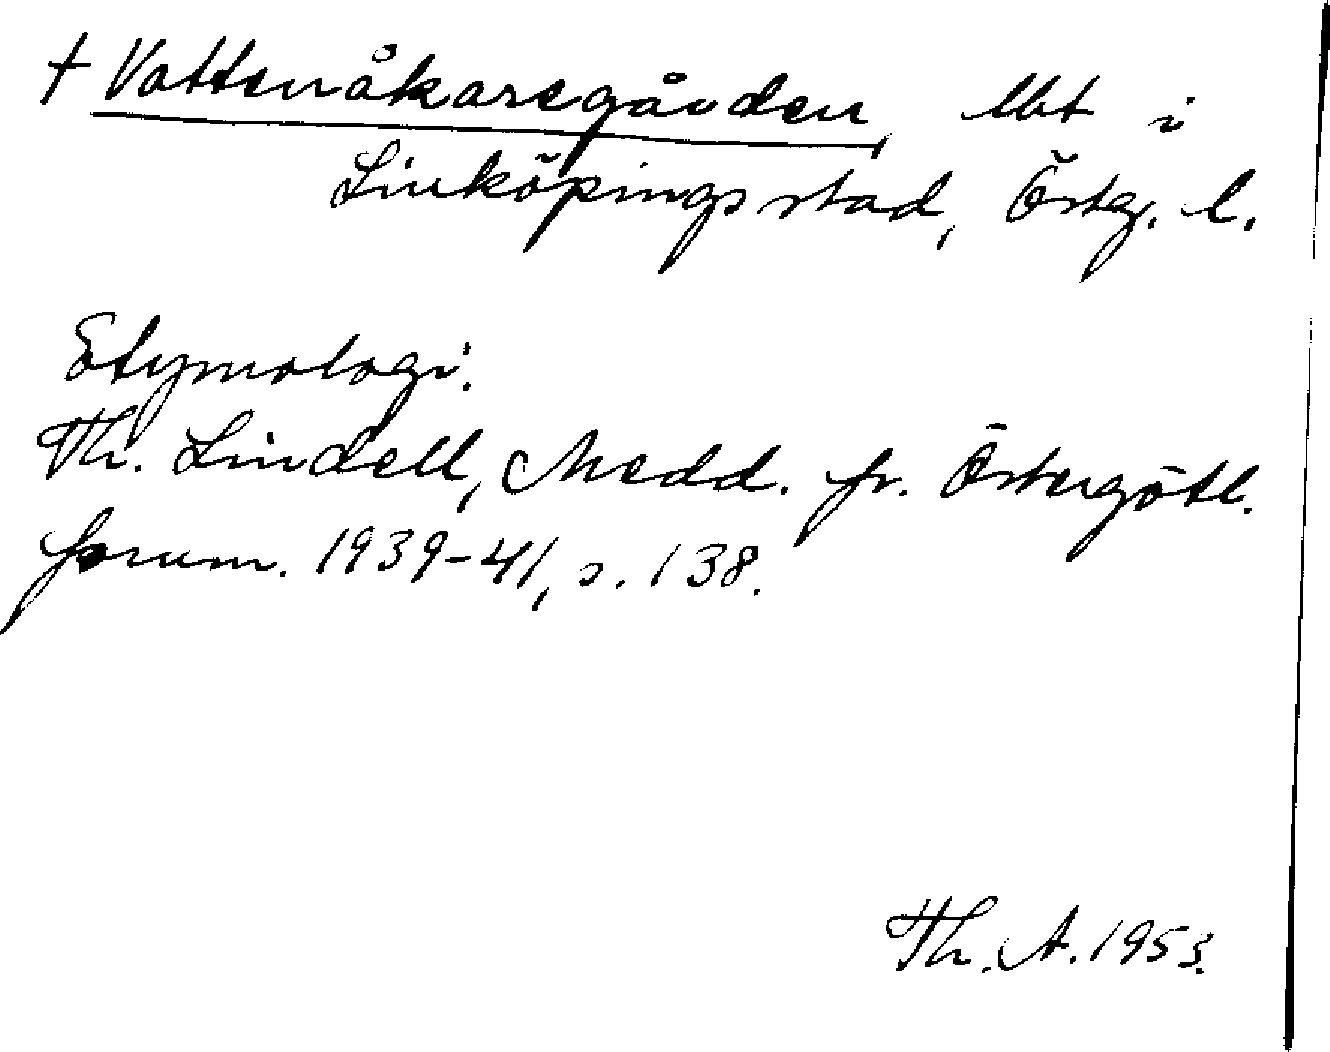 † Vattenåkaregården, lht i
Linköpings stad, Östg. l.
Etymologi:
Th. Lindell, Medd. fr. Östergötl.
fornm. 1939-41, s. 138.
Th. A. 1953.